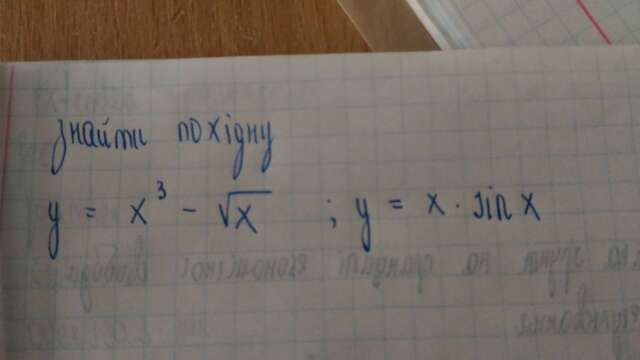 знайти похідну
y = x³ - √x ; y = x · sin x